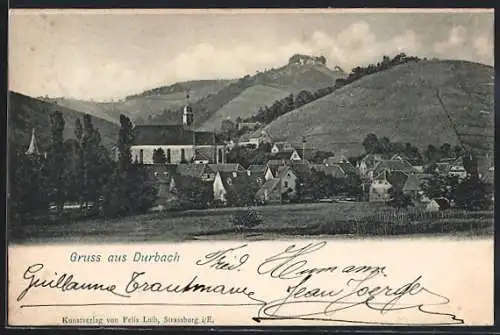 Gruss aus Durbach
Fréd. Humann
Guillaume Trautmann Jean Joerger
Kunstverlag von Felix Luib, Strassburg i/E.